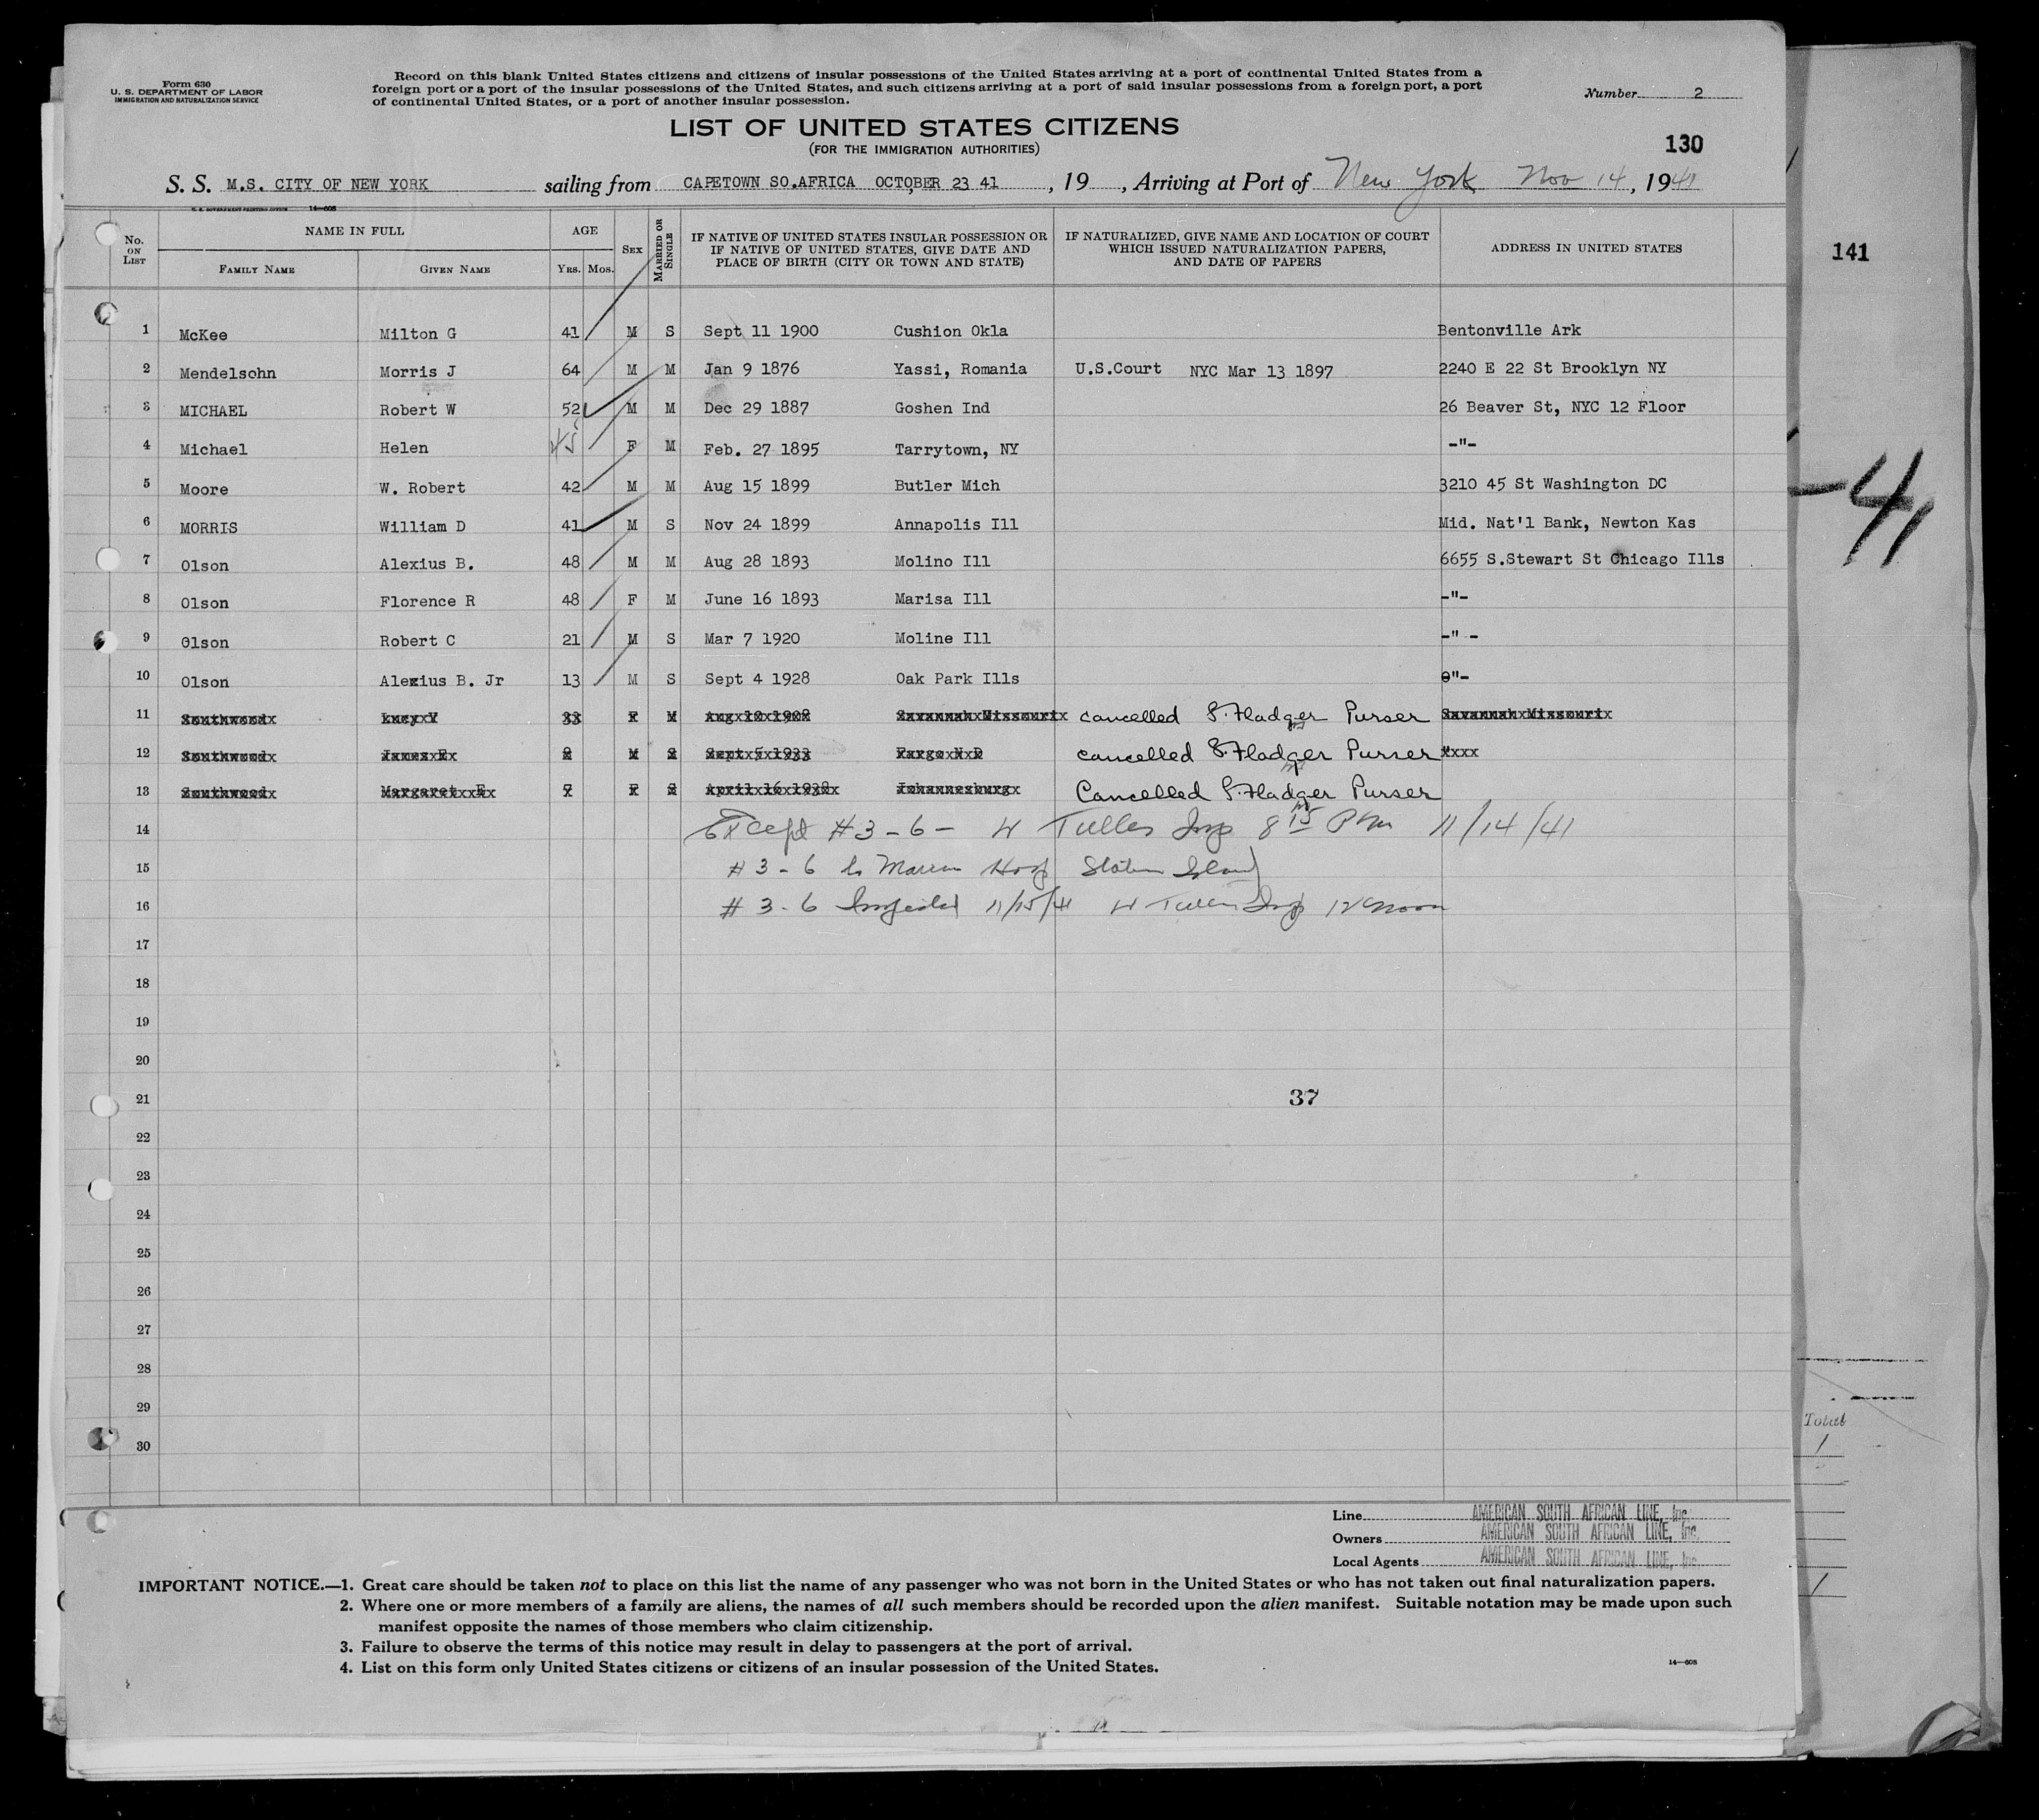 Form 630
U. S. DEPARTMENT OF LABOR
IMMIGRATION AND NATURALIZATION SERVICE
Record on this blank United States citizens and citizens of insular possessions of the United States arriving at a port of continental United States from a
foreign port or a port of the insular possessions of the United States, and such citizens arriving at a port of said insular possessions from a foreign port, a port
of continental United States, or a port of another insular possession.
Number 2
LIST OF UNITED STATES CITIZENS
(FOR THE IMMIGRATION AUTHORITIES)
130
S. S. M.S. CITY OF NEW YORK sailing from CAPETOWN SO.AFRICA OCTOBER 23 41, 19 , Arriving at Port of New York Nov 14, 1941
U. S. GOVERNMENT PRINTING OFFICE 14—608
No. ON LIST NAME IN FULL AGE SEX MARRIED OR SINGLE IF NATIVE OF UNITED STATES INSULAR POSSESSION OR IF NATIVE OF UNITED STATES, GIVE DATE AND PLACE OF BIRTH (CITY OR TOWN AND STATE) IF NATURALIZED, GIVE NAME AND LOCATION OF COURT WHICH ISSUED NATURALIZATION PAPERS, AND DATE OF PAPERS ADDRESS IN UNITED STATES
FAMILY NAME GIVEN NAME YRS. MOS.
141
1 McKee Milton G 41 M S Sept 11 1900 Cushion Okla Bentonville Ark
2 Mendelsohn Morris J 64 M M Jan 9 1876 Yassi, Romania U.S.Court NYC Mar 13 1897 2240 E 22 St Brooklyn NY
3 MICHAEL Robert W 52 M M Dec 29 1887 Goshen Ind 26 Beaver St, NYC 12 Floor
4 Michael Helen 45 F M Feb. 27 1895 Tarrytown, NY -"-
5 Moore W. Robert 42 M M Aug 15 1899 Butler Mich 3210 45 St Washington DC
6 MORRIS William D 41 M S Nov 24 1899 Annapolis Ill Mid. Nat'l Bank, Newton Kas
-41
7 Olson Alexius B. 48 M M Aug 28 1893 Molino Ill 6655 S.Stewart St Chicago Ills
8 Olson Florence R 48 F M June 16 1893 Marisa Ill -"-
9 Olson Robert C 21 M S Mar 7 1920 Moline Ill -" -
10 Olson Alexius B. Jr 13 M S Sept 4 1928 Oak Park Ills "-
11 Southwood Lucy V 33 F M Aug 10 1908 Savannah Missouri cancelled Purser Savannah Missouri
12 Southwood James E 8 M S Sept 5 1933 Fargo N D cancelled Purser
13 Southwood Margaret E F S April 16 Johannesburg Cancelled Purser
14 Except #3-6- W Tuller Insp 8 15 Pm 11/14/41
15 #3-6 to Marine Hosp Staten Island
16 #3-6 Inspected 11/15/41 W Tuller Insp 12 Noon
17
18
19
20
21 37
22
23
24
25
26
27
28
29
30
Total
1
1
Line AMERICAN SOUTH AFRICAN LINE, Inc.
Owners AMERICAN SOUTH AFRICAN LINE, Inc.
Local Agents AMERICAN SOUTH AFRICAN LINE, Inc.
IMPORTANT NOTICE.—1. Great care should be taken not to place on this list the name of any passenger who was not born in the United States or who has not taken out final naturalization papers.
2. Where one or more members of a family are aliens, the names of all such members should be recorded upon the alien manifest. Suitable notation may be made upon such
manifest opposite the names of those members who claim citizenship.
3. Failure to observe the terms of this notice may result in delay to passengers at the port of arrival.
4. List on this form only United States citizens or citizens of an insular possession of the United States.
14—608